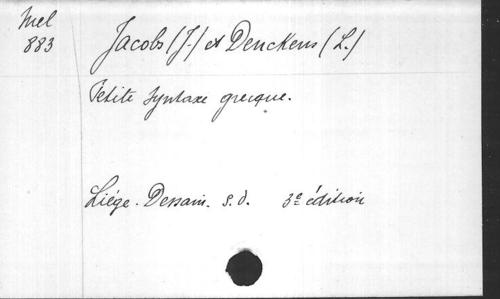 Mel
883
Jacobs (J.) et Denckens (L.)
Petite syntaxe grecque.
Liége. Dessain. s.d. 3e édition